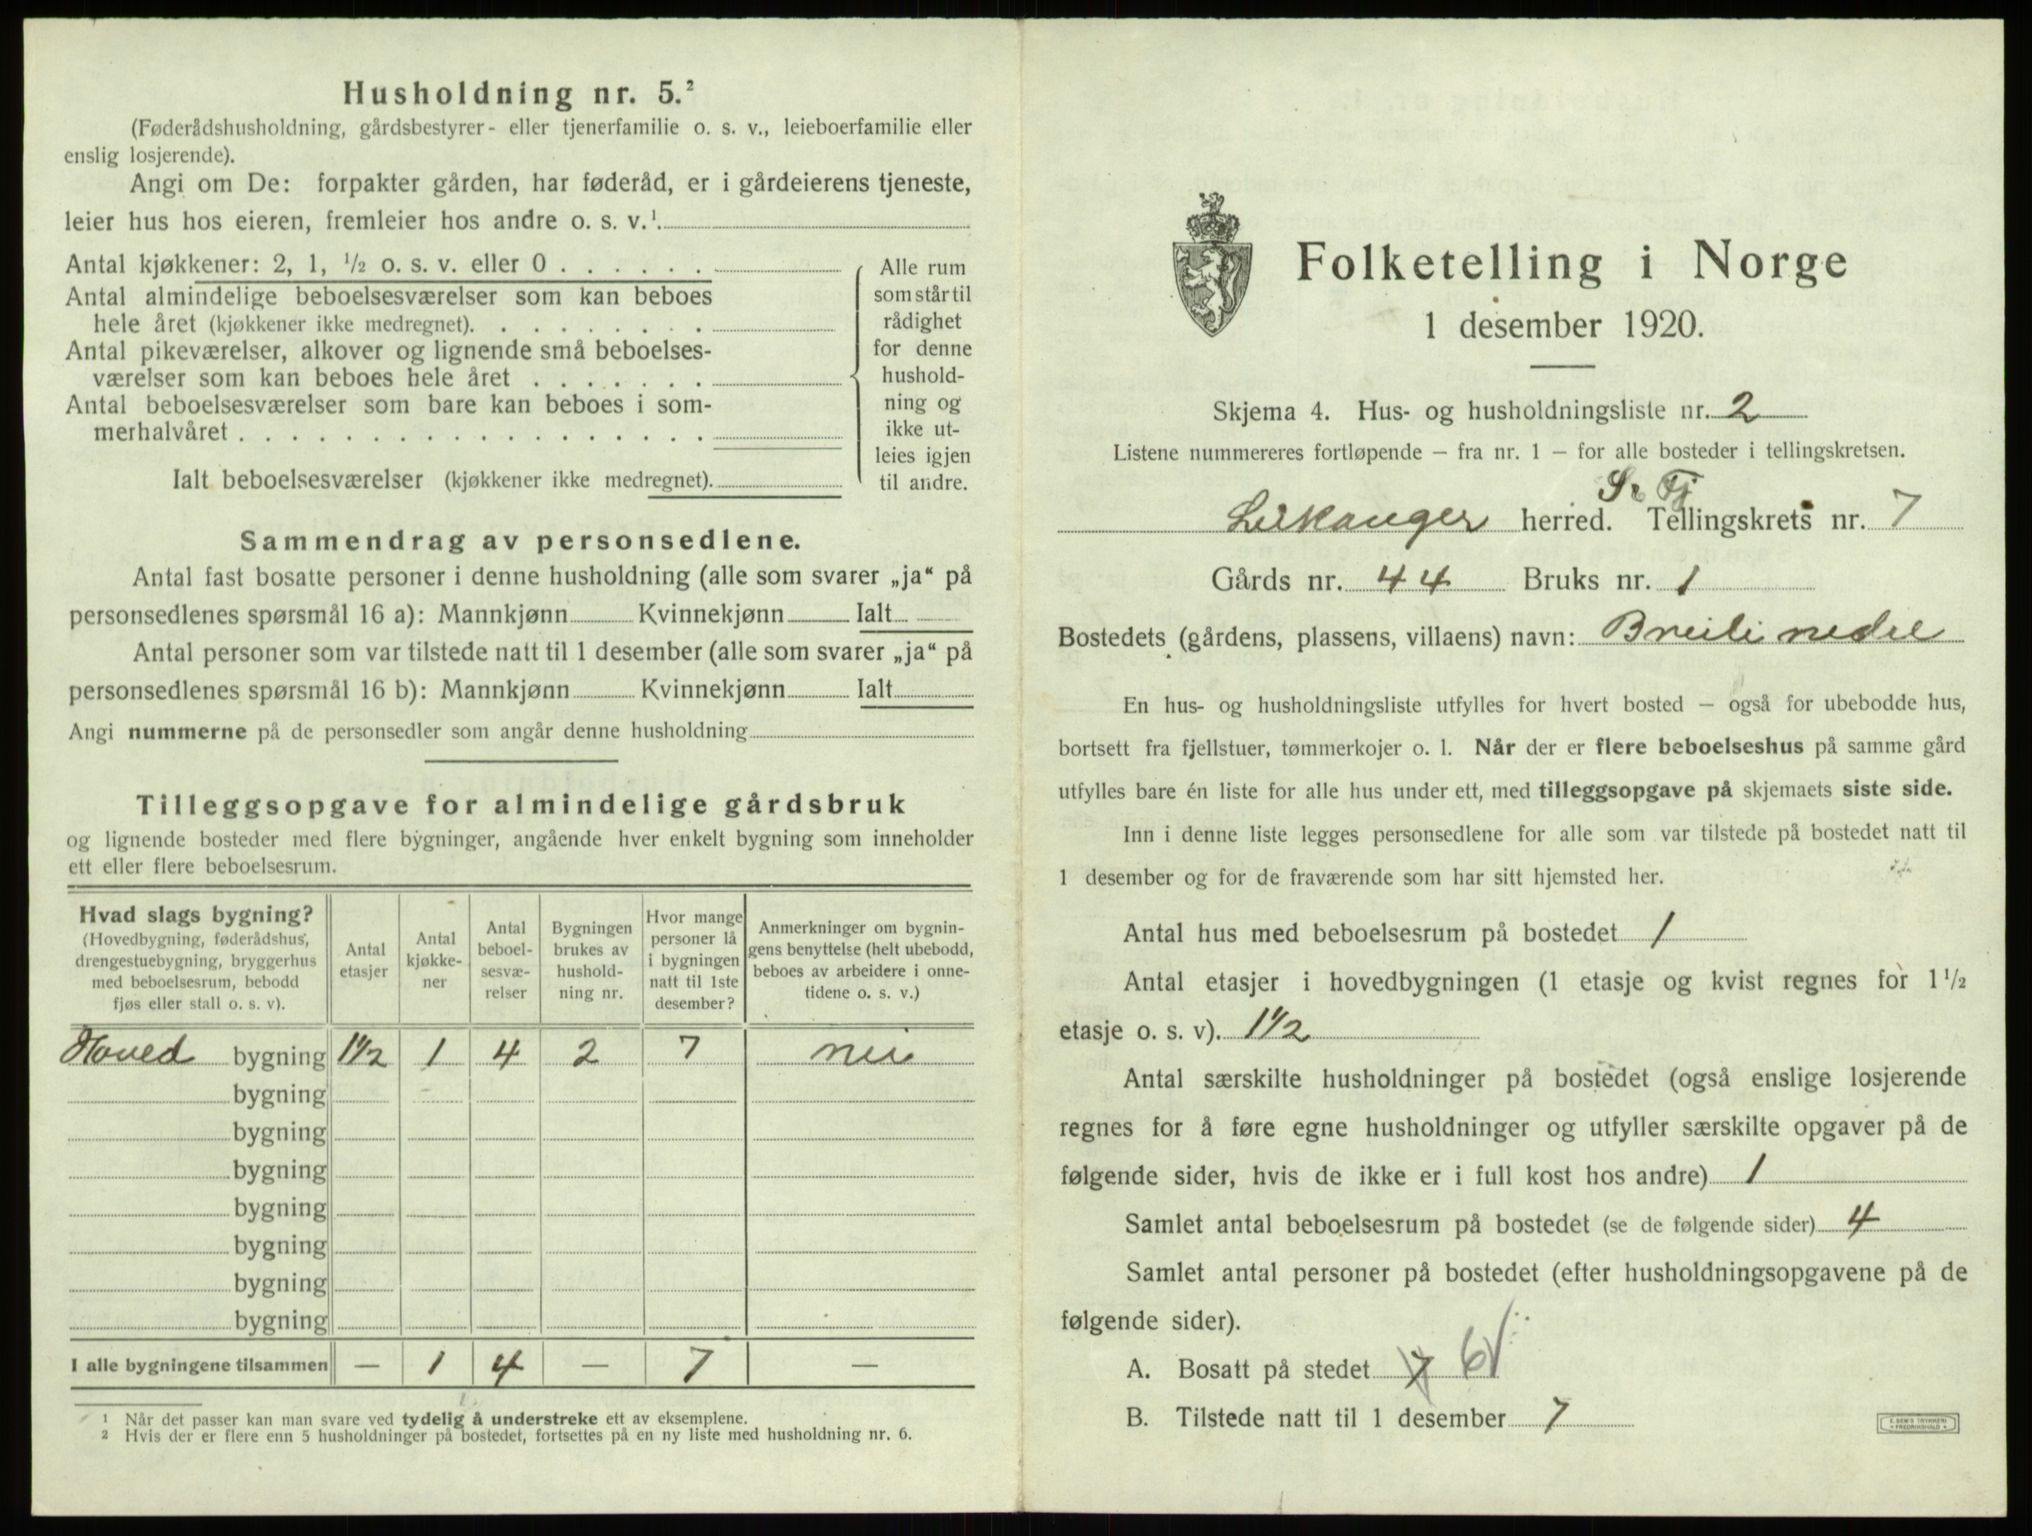 Husholdning nr. 5.²
(Føderådshusholdning, gårdsbestyrer- eller tjenerfamilie o. s. v., leieboerfamilie eller
enslig losjerende).
Angi om De: forpakter gården, har føderåd, er i gårdeierens tjeneste,
leier hus hos eieren, fremleier hos andre o. s. v.¹
Antal kjøkkener: 2, 1, ½ o. s. v. eller 0 . . . . . .
Antal almindelige beboelsesværelser som kan beboes
hele året (kjøkkener ikke medregnet). . . . . . . . .
Antal pikeværelser, alkover og lignende små beboelses-
værelser som kan beboes hele året . . . . . . .
Antal beboelsesværelser som bare kan beboes i som-
merhalvåret . . . . . . . . . . . . . . . . . .
Ialt beboelsesværelser (kjøkkener ikke medregnet).
Alle rum
som står til
rådighet
for denne
hushold-
ning og
ikke ut-
leies igjen
til andre.
Sammendrag av personsedlene.
Antal fast bosatte personer i denne husholdning (alle som svarer „ja“ på
personsedlenes spørsmål 16 a): Mannkjønn Kvinnekjønn Ialt
Antal personer som var tilstede natt til 1 desember (alle som svarer „ja“ på
personsedlenes spørsmål 16 b): Mannkjønn Kvinnekjønn Ialt
Angi nummerne på de personsedler som angår denne husholdning
Tilleggsopgave for almindelige gårdsbruk
og lignende bosteder med flere bygninger, angående hver enkelt bygning som inneholder
ett eller flere beboelsesrum.
Hvad slags bygning?
(Hovedbygning, føderådshus,
drengestuebygning, bryggerhus
med beboelsesrum, bebodd
fjøs eller stall o. s. v.).
Antal
etasjer
Antal
kjøkke-
ner
Antal
beboel-
sesvæ-
relser
Bygningen
brukes av
hushold-
ning nr.
Hvor mange
personer lå
i bygningen
natt til 1ste
desember?
Anmerkninger om bygnin-
gens benyttelse (helt ubebodd,
beboes av arbeidere i onne-
tidene o. s. v.)
Hoved bygning 1½ 1 4 2 7 nei
bygning
bygning
bygning
bygning
bygning
bygning
bygning
I alle bygningene tilsammen — 1 4 — 7 —
1 Når det passer kan man svare ved tydelig å understreke ett av eksemplene.
2 Hvis der er flere enn 5 husholdninger på bostedet, fortsettes på en ny liste med husholdning nr. 6.
Folketelling i Norge
1 desember 1920.
Skjema 4. Hus- og husholdningsliste nr. 2
Listene nummereres fortløpende – fra nr. 1 – for alle bosteder i tellingskretsen.
S. Fj
Leikanger herred. Tellingskrets nr. 7
Gårds nr. 44 Bruks nr. 1
Bostedets (gårdens, plassens, villaens) navn: Breili nedre
En hus- og husholdningsliste utfylles for hvert bosted – også for ubebodde hus,
bortsett fra fjellstuer, tømmerkojer o. l. Når der er flere beboelseshus på samme gård
utfylles bare én liste for alle hus under ett, med tilleggsopgave på skjemaets siste side.
Inn i denne liste legges personsedlene for alle som var tilstede på bostedet natt til
1 desember og for de fraværende som har sitt hjemsted her.
Antal hus med beboelsesrum på bostedet 1
Antal etasjer i hovedbygningen (1 etasje og kvist regnes for 1½
etasje o. s. v). 1½
Antal særskilte husholdninger på bostedet (også enslige losjerende
regnes for å føre egne husholdninger og utfyller særskilte opgaver på de
følgende sider, hvis de ikke er i full kost hos andre) 1
Samlet antal beboelsesrum på bostedet (se de følgende sider) 4
Samlet antal personer på bostedet (efter husholdningsopgavene på de
følgende sider).
A. Bosatt på stedet 7 6
B. Tilstede natt til 1 desember 7